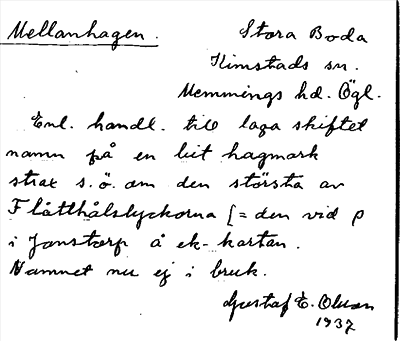 Mellanhagen. Stora Boda
Kimstads sn.
Memmings hd. Ögl.
Enl. handl. till laga skiftet
namn på en bit hagmark
strax s.ö. om den största av
Flåtthålslyckorna [= den vid p
i Janstorp å ek-kartan.
Namnet nu ej i bruk.
Gustaf E. Olson
1937